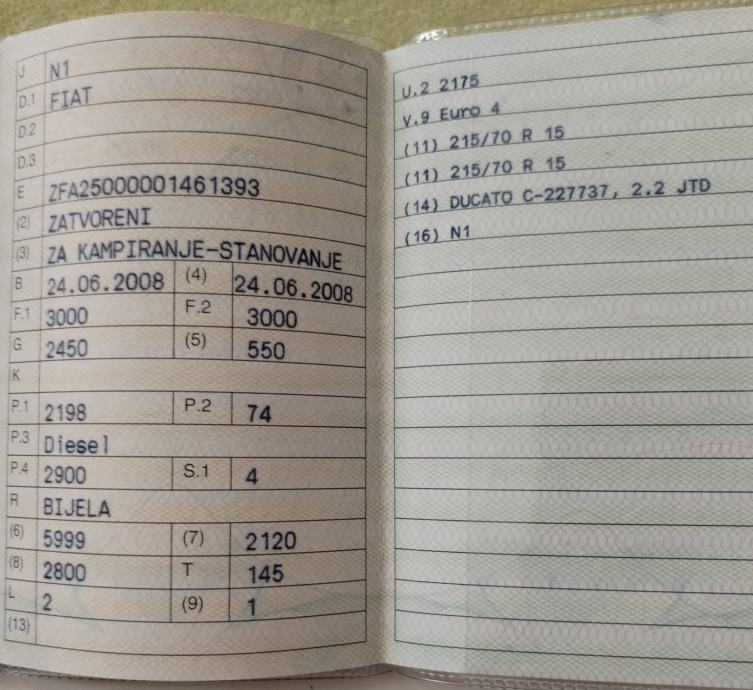 J N1
D.1 FIAT
D.2
D.3
E ZFA25000001461393
(2) ZATVORENI
(3) ZA KAMPIRANJE-STANOVANJE
B 24.06.2008 (4) 24.06.2008
F.1 3000 F.2 3000
G 2450 (5) 550
K
P.1 2198 P.2 74
P.3 Diesel
P.4 2900 S.1 4
R BIJELA
(6) 5999 (7) 2120
(8) 2800 T 145
L 2 (9) 1
(13)
U.2 2175
V.9 Euro 4
(11) 215/70 R 15
(11) 215/70 R 15
(14) DUCATO C-227737, 2.2 JTD
(16) N1